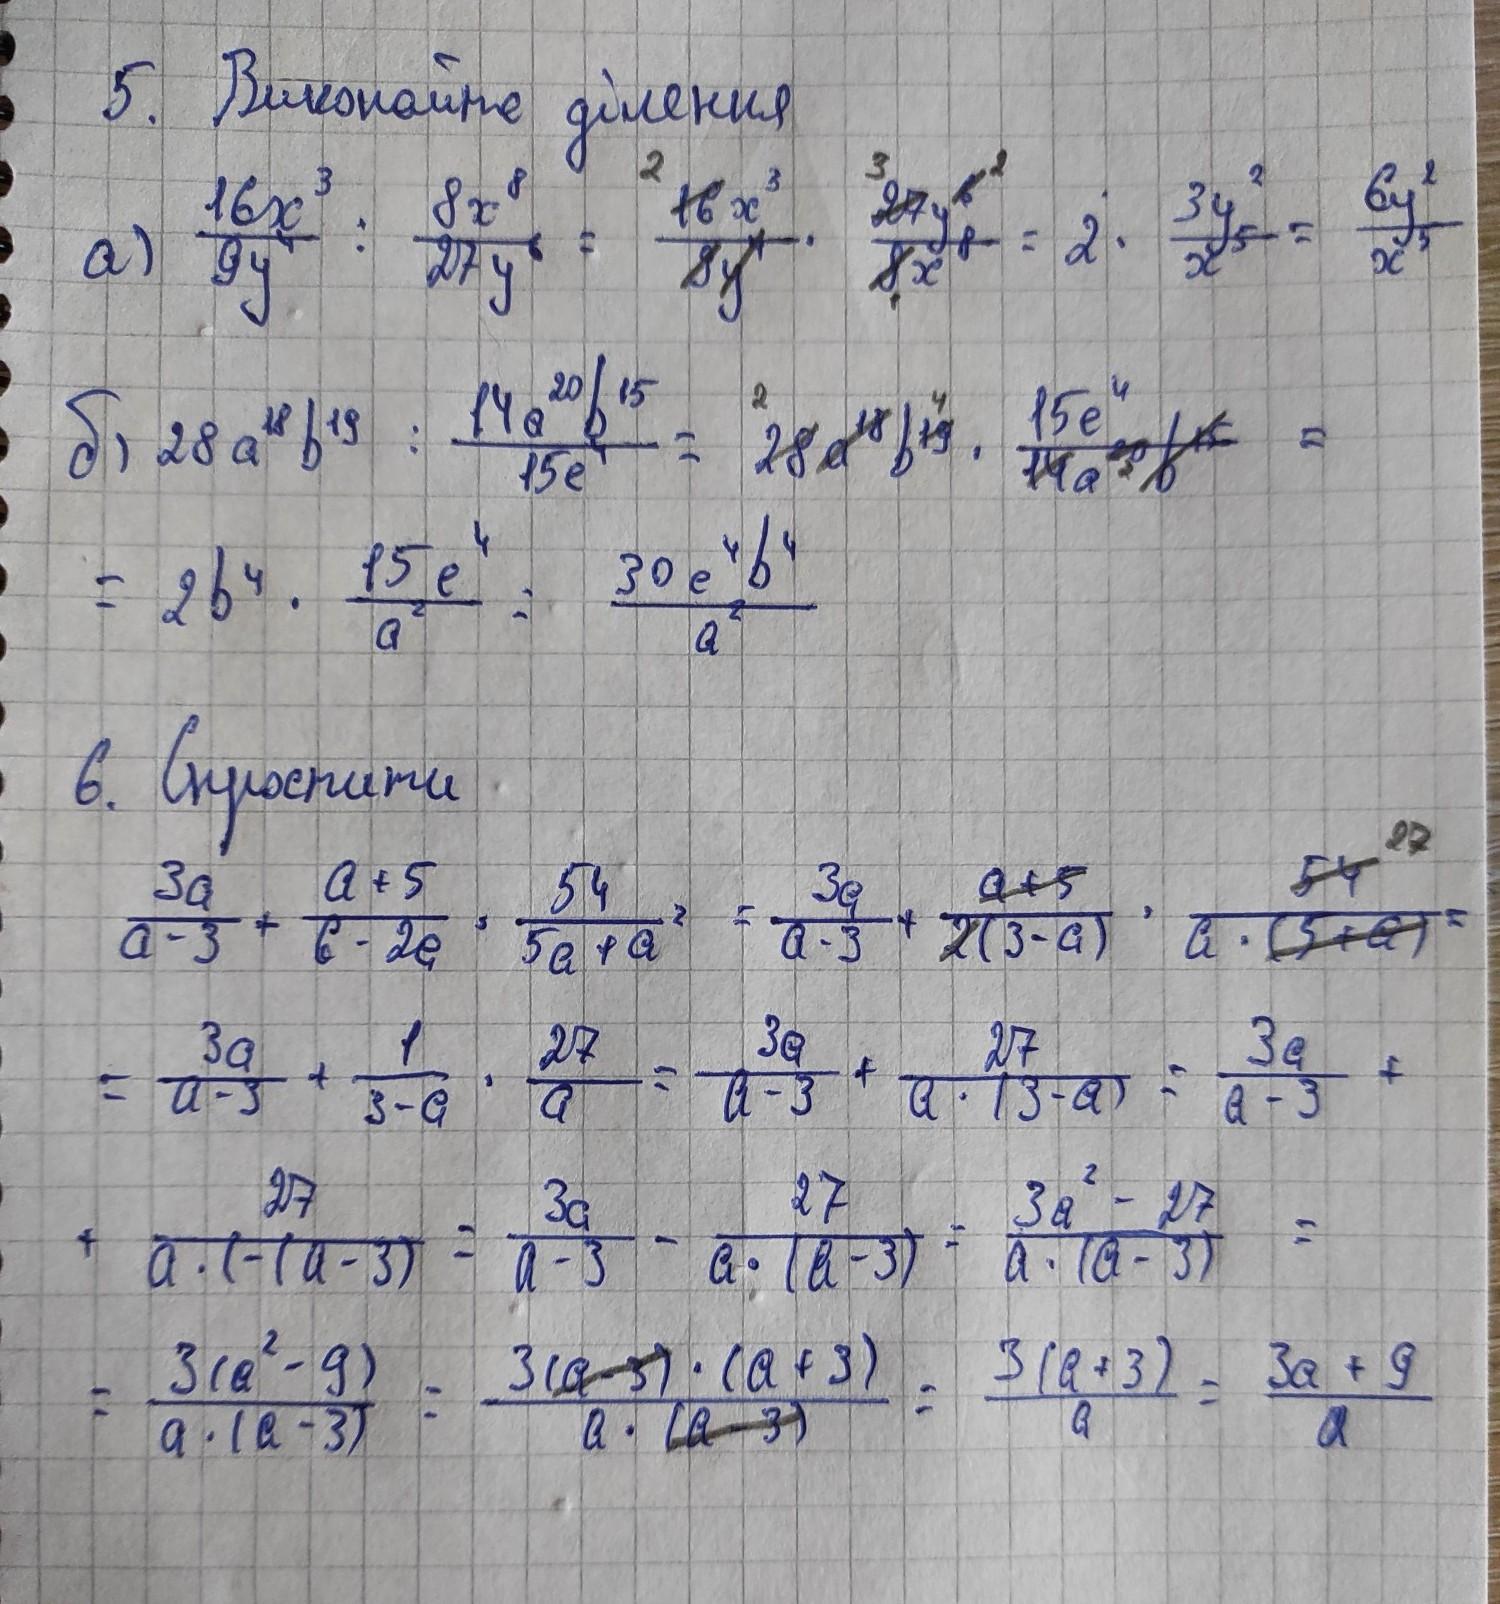 5. Виконайте ділення
а) \frac{16x^3}{9y^4} : \frac{8x^8}{27y^6} = \frac{16x^3}{9y^4} · \frac{27y^6}{8x^8} = 2 · \frac{3y^2}{x^5} = \frac{6y^2}{x^5}
б) 28a^{18}b^{19} : \frac{14a^{20}b^{15}}{15c^4} = 28a^{18}b^{19} · \frac{15c^4}{14a^{20}b^{15}} =
= 2b^4 · \frac{15c^4}{a^2} = \frac{30c^4b^4}{a^2}
6. Спростити
\frac{3a}{a-3} + \frac{a+5}{6-2a} · \frac{54}{5a+a^2} = \frac{3a}{a-3} + \frac{a+5}{2(3-a)} · \frac{54}{a·(5+a)} =
= \frac{3a}{a-3} + \frac{1}{3-a} · \frac{27}{a} = \frac{3a}{a-3} + \frac{27}{a·(3-a)} = \frac{3a}{a-3} +
+ \frac{27}{a·(-(a-3)} = \frac{3a}{a-3} - \frac{27}{a·(a-3)} = \frac{3a^2-27}{a·(a-3)} =
= \frac{3(a^2-9)}{a·(a-3)} = \frac{3(a-3)·(a+3)}{a·(a-3)} = \frac{3(a+3)}{a} = \frac{3a+9}{a}